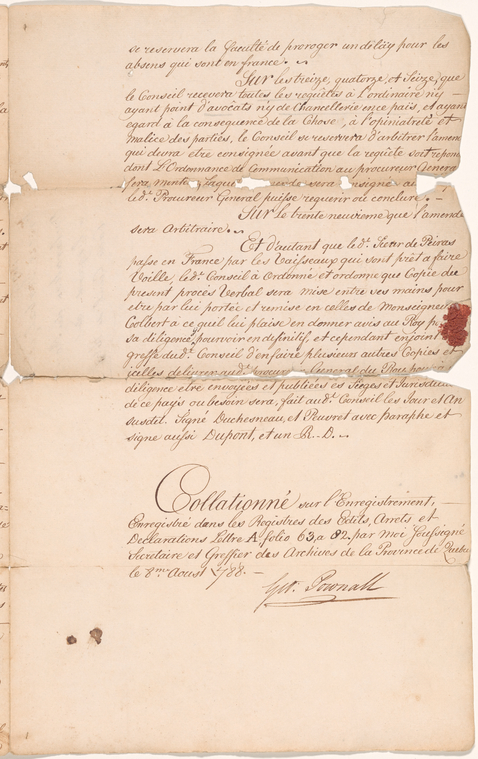 se reservera la faculté de proroger un délay pour les
absens qui sont en france.
Sur les treize, quatorze, et Seize, que
le Conseil recevera toutes les requêtes à L'ordinaire n'y
ayant point d'avocats n'y de Chancellerie en ce païs, et ayant
egard à la consequence de la Chose, à l'opiniatreté et
malice des parties, le Conseil se reservera d'arbitrer l'amen
qui devra etre consignée avant que la reqûete soit repon
dont L'ordonnance de Communication au procureur General
sera
led.t Procureur General puisse requerir ou conclure.
Sur Le trente neuvieme que l'amende
sera Arbitraire.
Et D'autant que led.t Sieur de Peiras
passe en France par les Vaisseaux qui sont prêt a faire
Voille, led.t Conseil à Ordonné et ordonne que Copie du
present procés Verbal sera mise entre ses mains pour
etre par lui portée et remise en celles de Monseigneur
Colbert à ce qu'il lui plaise en donner avis au Roy
sa diligence, pourvoir en definitif, et cependant enjoint
greffe dud.t Conseil d'en faire plusieurs autres Copies et
icelles delivrer au d.t procureur General du Roy pour
diligence etre envoyées et publiées es Sieges et Jurisdictions
de ce païs ou besoin sera, fait aud.t Conseil les Jour et An
susdit. Signé Duchesneau, et Peuvret avec paraphe et
signe aussi Dupont, et un R.D.
Collationné sur l'Enregistrement,
Enregistré dans les Registres des Edits, Arrets et
Declarations Lettre A folio 63, a 82. par moi soussigné
Secretaire et Greffier des Archives de la Province de Quebec
le 8.me Aoust 1788.
Geo: Pownall